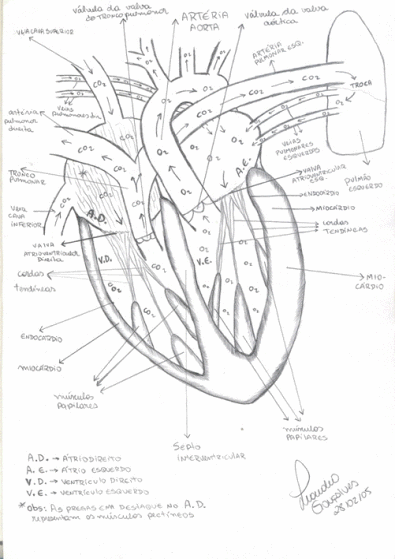 válvula da valva
do tronco pulmonar
ARTÉRIA
AORTA
válvula da valva
aórtica
VEIA CAVA SUPERIOR
ARTÉRIA
PULMONAR ESQ.
CO2
O2
TROCA
artéria
pulmonar
direita
VEIAS
PULMONARES DIR.
VEIAS
PULMONARES
ESQUERDAS
TRONCO
PULMONAR
*
A.E.
VALVA
ATRIOVENTRICULAR
ESQ.
PULMÃO
ESQUERDO
ENDOCÁRDIO
MIOCÁRDIO
cordas
TENDÍNEAS
VEIA
CAVA
INFERIOR
A.D.
VALVA
ATRIOVENTRICULAR
Direita
V.D.
V.E.
cordas
tendíneas
MIO-
CÁRDIO
ENDOCÁRDIO
MIOCÁRDIO
músculos
PAPILARES
músculos
PAPILARES
SEPTO
INTERVENTRICULAR
A.D. → ÁTRIO DIREITO
A.E. → ÁTRIO ESQUERDO
V.D. → VENTRÍCULO DIREITO
V.E. → VENTRÍCULO ESQUERDO
* obs: AS PREGAS EM DESTAQUE NO A.D.
representam os músculos pectíneos
Leandro
Gonçalves
28/02/05